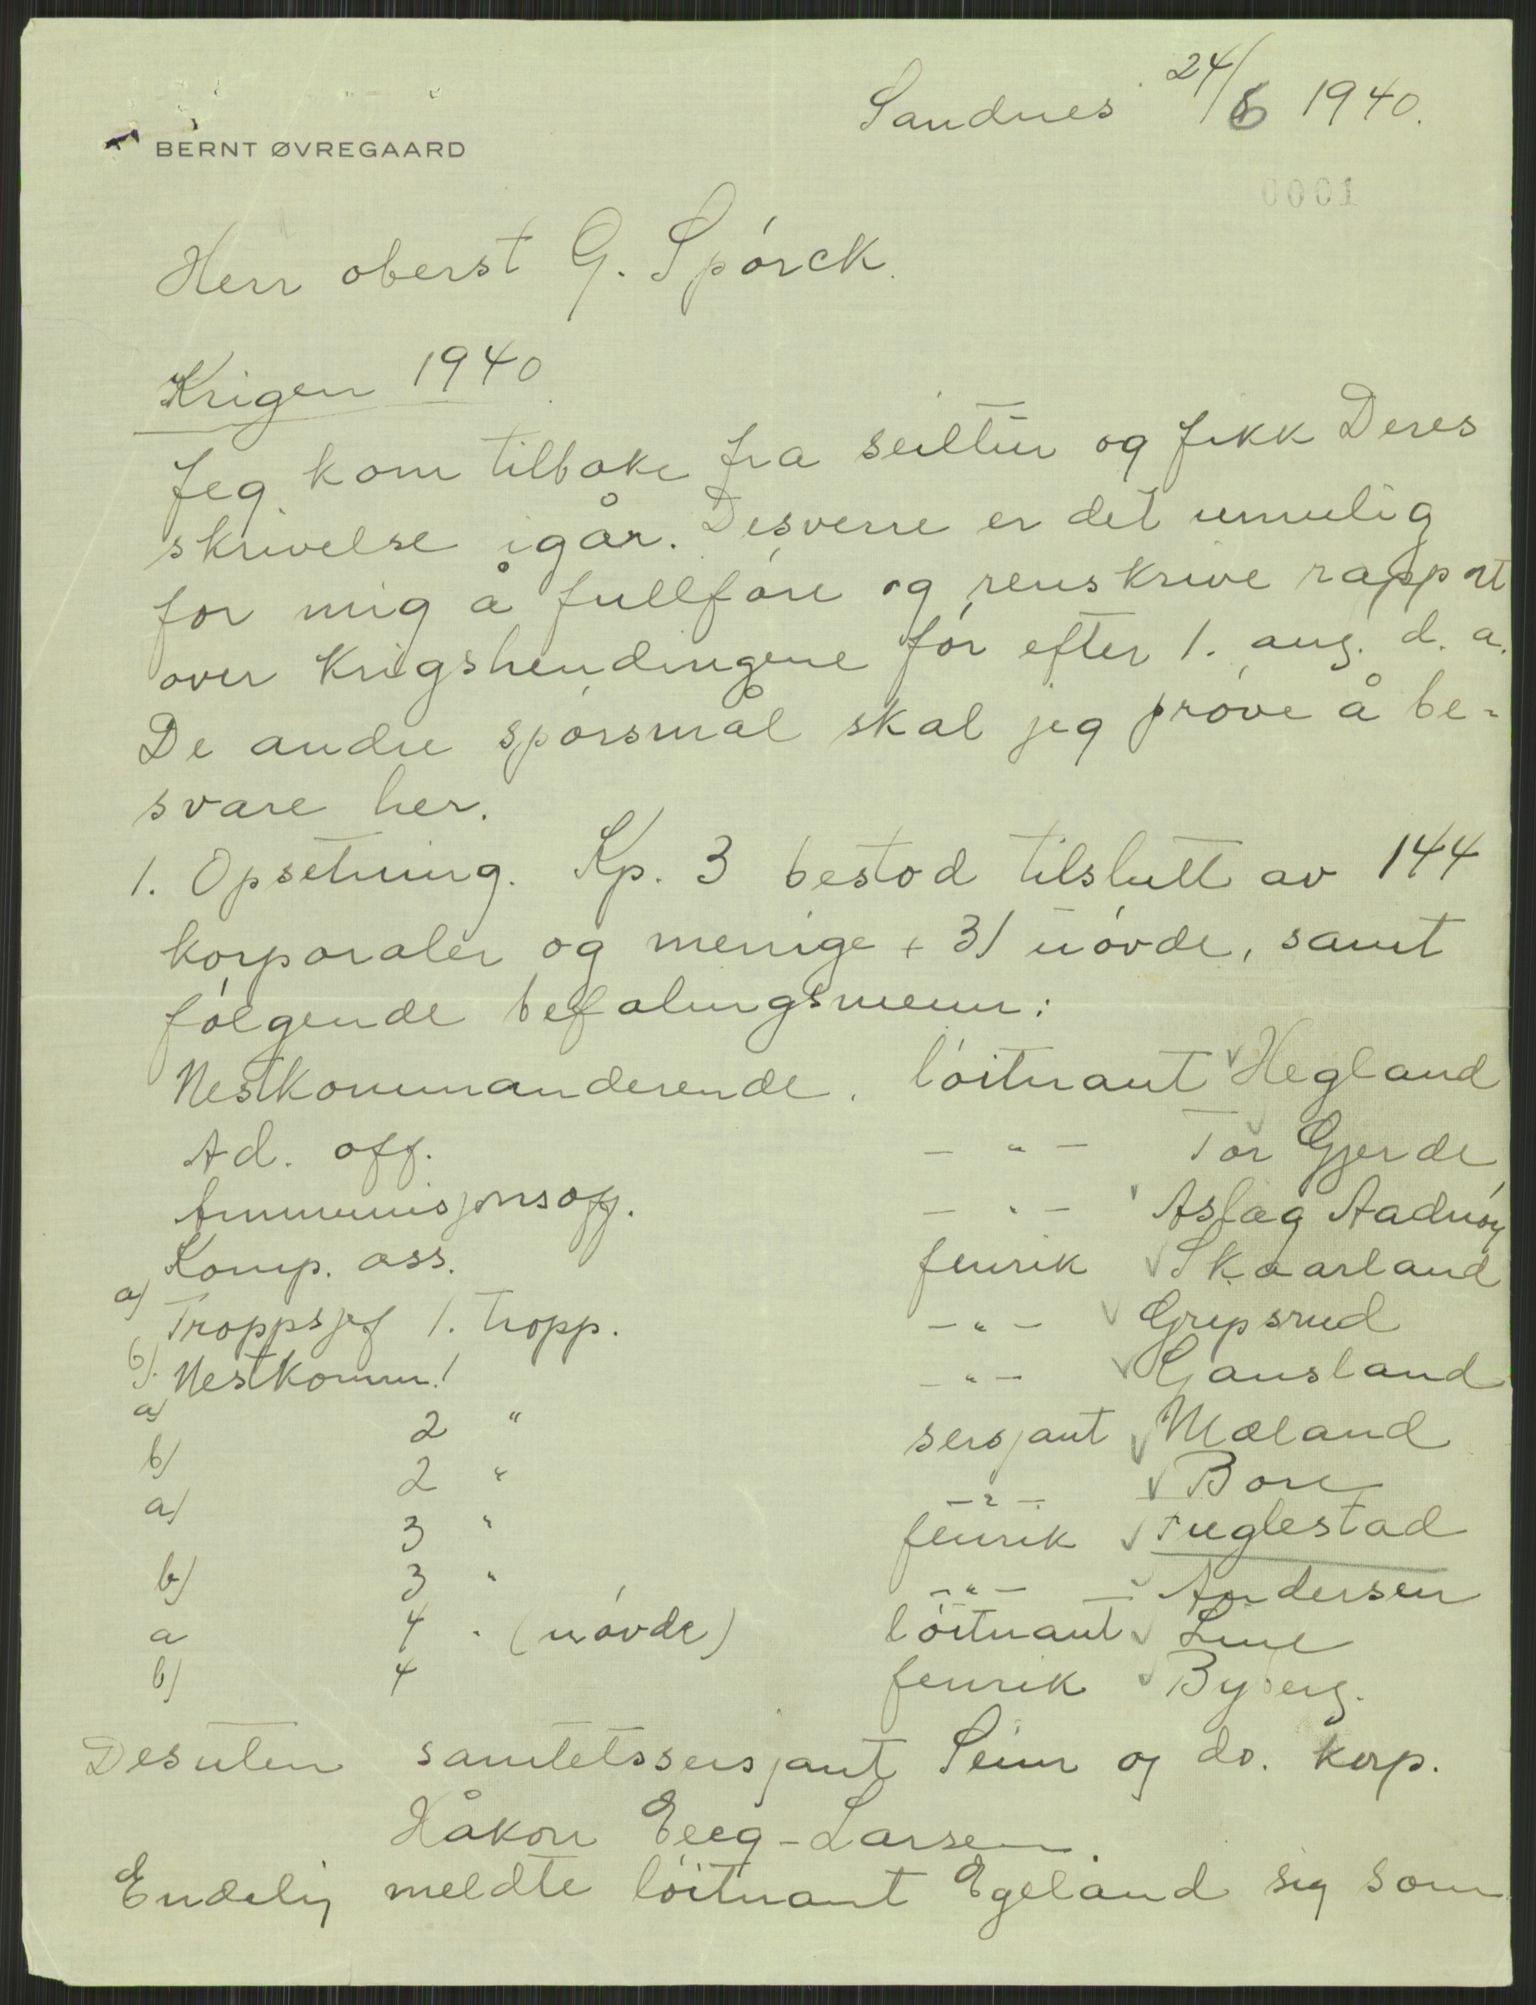 Sandnes 24/6 1940.
BERNT ØVREGAARD
0001
Herr oberst G. Spórck.
Krigen 1940.
Jeg kom tilbake fra seiltur og fikk Deres
skrivelse igår. Desverre er det umulig
for mig å fullføre og renskrive rapport
over krigshendingene før efter 1. aug. d. a.
De andre spórsmål skal jeg próve å be-
svare her.
1. Opsetning. Kp. 3 bestod tilslutt av 144
korporaler og menige + 31 uóvde, samt
fólgende befalingsmenn:
Nestkommanderende. lóitnant Hegland
Ad. off. — " — Tor Gjerde
Ammunisjonsoff. — " — Aslag Aadnóy
Komp. ass. fenrik Skaarland
a) Troppsjef 1. tropp. — " — Gripsrud
b). Nestkomm. 1 — " — Gausland
a) 2 " sersjant Mæland
b) 2 " — " — Bore
a) 3 " fenrik Fuglestad
b) 3 " — " — Andersen
a 4 " (uóvde) lóitnant Line
b) 4 fenrik Byberg.
Desuten sanitetssersjant Seim og do. korp.
Håkon Eeg-Larsen.
Endelig meldte lóitnant Egeland sig som